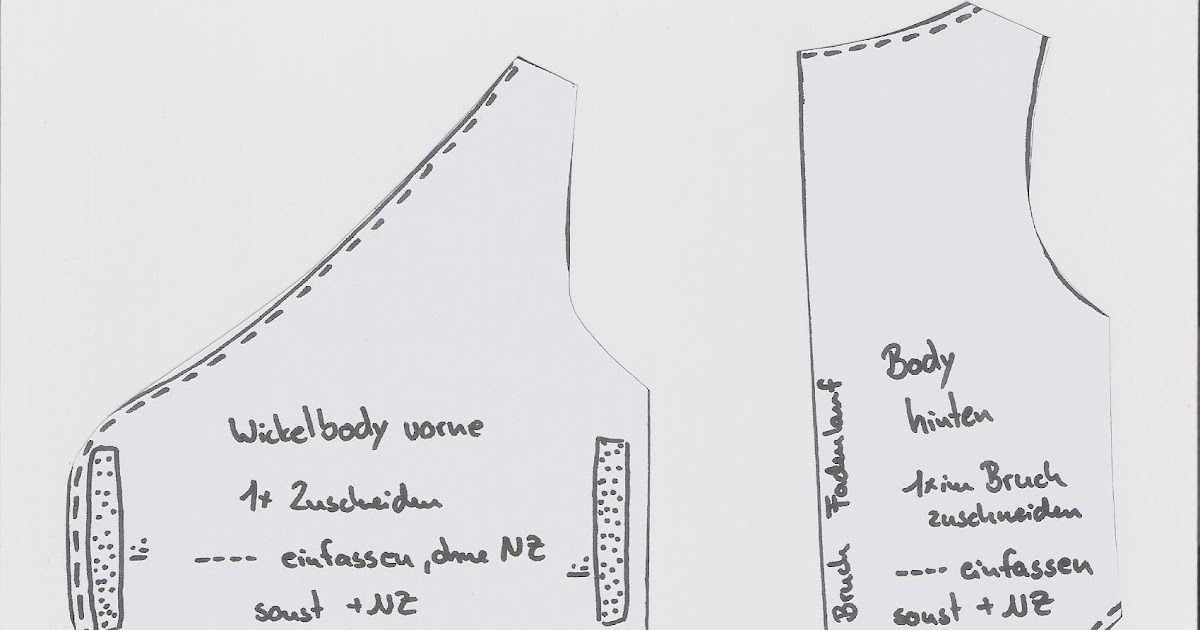 Wickelbody vorne
1x Zuschneiden
---- einfassen, ohne NZ
sonst + NZ
Body
hinten
1x im Bruch
zuschneiden
---- einfassen
sonst + NZ
Bruch Fadenlauf